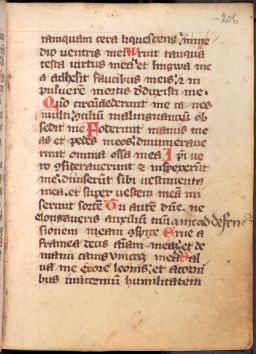 206
tanquam cera liquescens in me
dio ventris mei Aruit tanquā
testa virtus mea et lingwa me
a adhesit faucibus meis et in
puluere mortis deduxisti me
Quō circūdederunt me canes
multi ꝯciliū malingnanciū ob
sedit me Foderunt manus me
as et pedes meos dinumerave
runt omnia ossa mea Ipi ve
ro ꝯsideraverunt et inspexerūt
me diuiserūt sibi uestimenta
mea et super vestem meā mi
serunt sortē Tu autē dn̄e ne
elongaveris auxiliū tuū a me ad defen
sionem meam ꝯspice Erue a
framea deus aīam meā et de
manu canis vnicā meā Sal
ua me ex ore leonis et a corni
bus unicorniū humilitatem